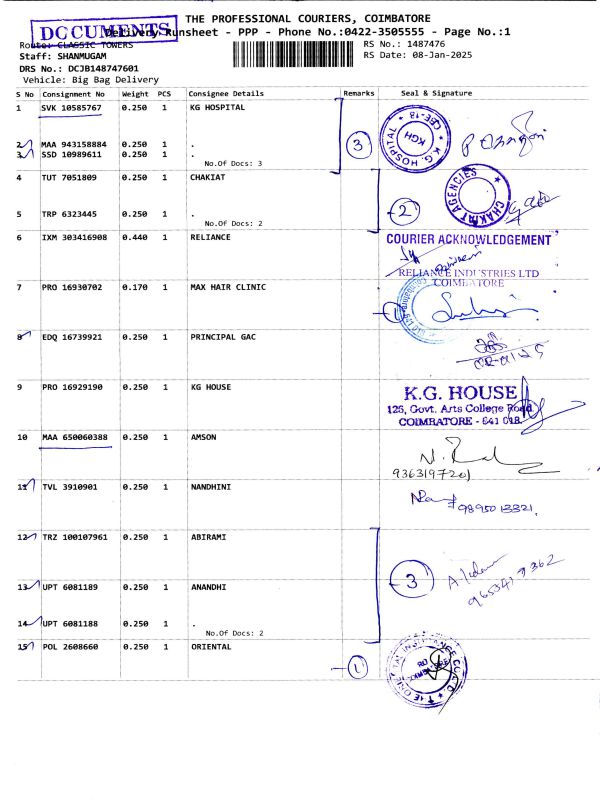 THE PROFESSIONAL COURIERS, COIMBATORE
DOCUMENTS
Delivery Runsheet - PPP - Phone No.:0422-3505555 - Page No.:1
Route: CLASSIC TOWERS
RS No.: 1487476
Staff: SHANMUGAM
RS Date: 08-Jan-2025
DRS No.: DCJB148747601
Vehicle: Big Bag Delivery
S No Consignment No Weight PCS Consignee Details Remarks Seal & Signature
1 SVK 10585767 0.250 1 KG HOSPITAL
2 MAA 943158884 0.250 1 .
3 SSD 10989611 0.250 1 .
No.Of Docs: 3
3
K.G. HOSPITAL
CBE-18
KGH
4 TUT 7051809 0.250 1 CHAKIAT
5 TRP 6323445 0.250 1 .
No.Of Docs: 2
2
CHAKIAT AGENCIES
6 IXM 303416908 0.440 1 RELIANCE
COURIER ACKNOWLEDGEMENT
RELIANCE INDUSTRIES LTD
COIMBATORE
7 PRO 16930702 0.170 1 MAX HAIR CLINIC
1
8 EDQ 16739921 0.250 1 PRINCIPAL GAC
9 PRO 16929190 0.250 1 KG HOUSE
K.G. HOUSE
126, Govt. Arts College Road
COIMBATORE - 641 018.
10 MAA 650060388 0.250 1 AMSON
9363197201
11 TVL 3910901 0.250 1 NANDHINI
9895013321.
12 TRZ 100107961 0.250 1 ABIRAMI
13 UPT 6081189 0.250 1 ANANDHI
3
14 UPT 6081188 0.250 1 .
No.Of Docs: 2
15 POL 2608660 0.250 1 ORIENTAL
1
THE ORIENTAL INSURANCE CO. LTD.